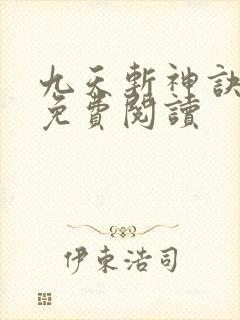 九天斬神訣
免費閱讀
伊東浩司